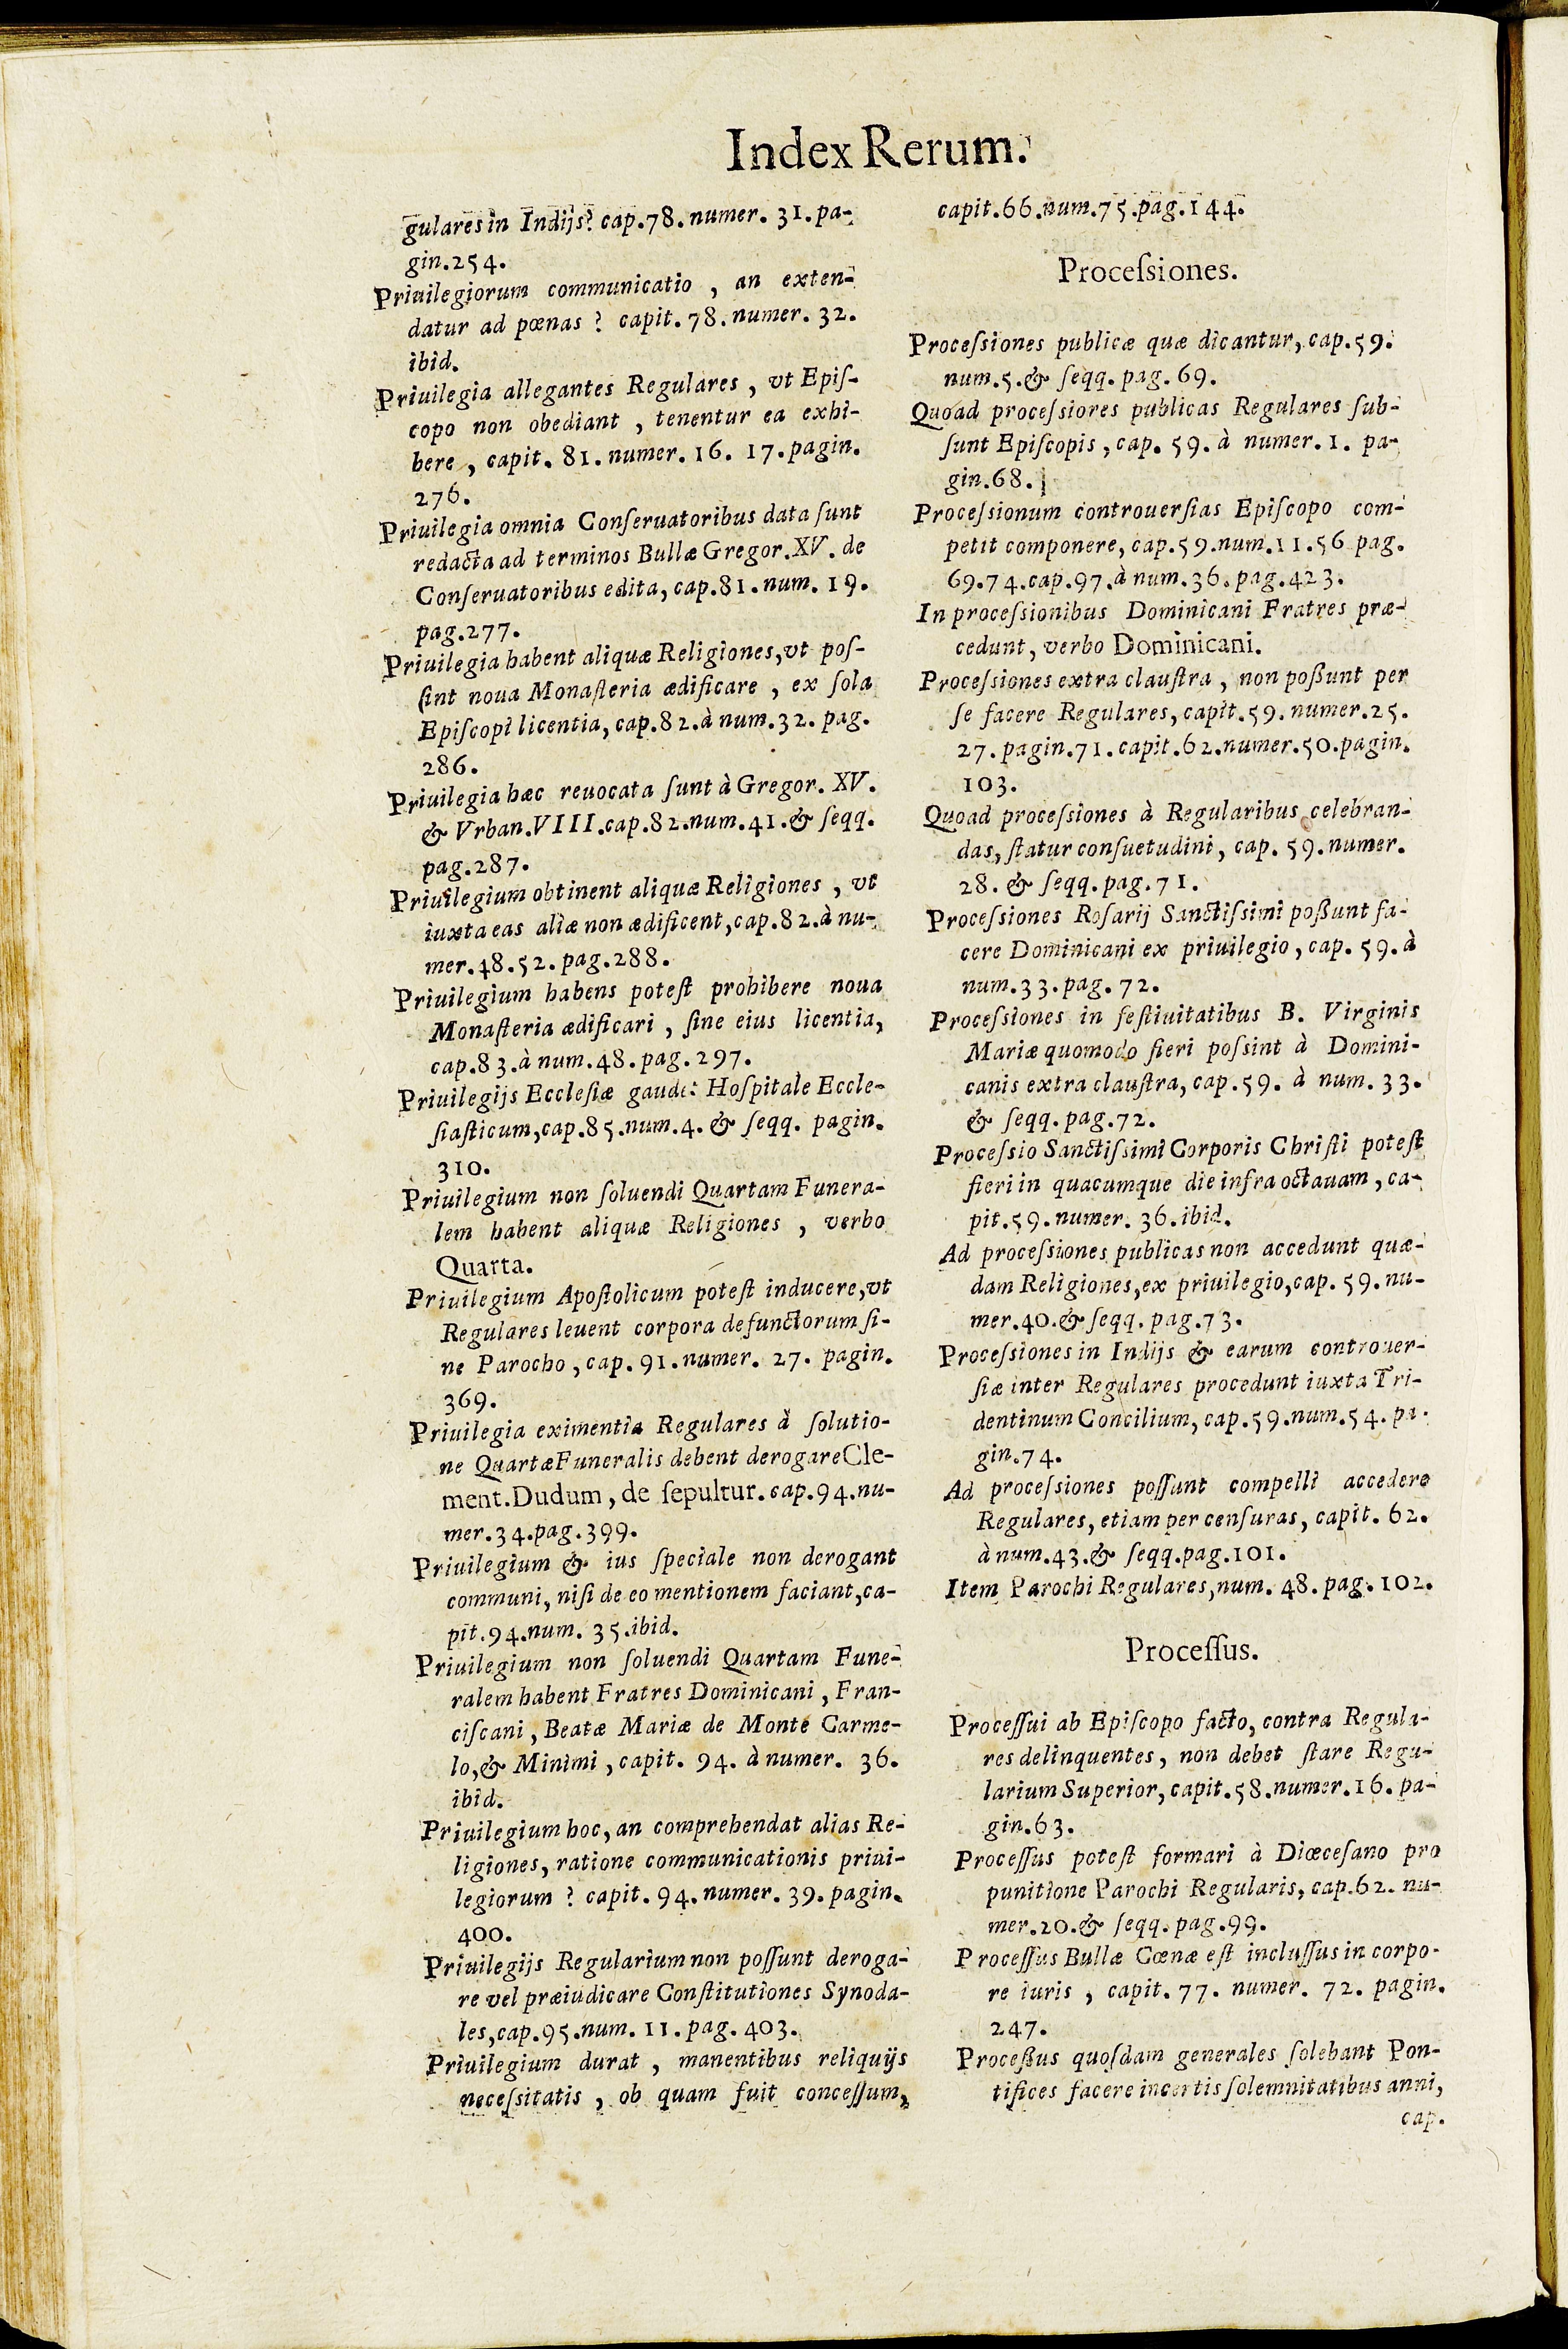 Index Rerum.
gulares in Indijs? cap.78. numer. 31. pa-
gin.254.
Priuilegiorum communicatio, an exten-
datur ad pœnas? capit. 78. numer. 32.
ibid.
Priuilegia allegantes Regulares, vt Epiſ-
copo non obediant, tenentur ea exhi-
bere, capit. 81. numer. 16. 17. pagin.
276.
Priuilegia omnia Conſeruatoribus data ſunt
redacta ad terminos Bullæ Gregor. XV. de
Conſeruatoribus edita, cap.81. num. 19.
pag.277.
Priuilegia habent aliquæ Religiones, vt poſ-
ſint noua Monaſteria ædificare, ex ſola
Epiſcopi licentia, cap.82. à num.32. pag.
286.
Priuilegia hæc reuocata ſunt à Gregor. XV.
& Vrban. VIII. cap.82. num.41. & ſeqq.
pag.287.
Priuilegium obtinent aliquæ Religiones, vt
iuxta eas aliæ non ædificent, cap.82. à nu-
mer.48.52. pag.288.
Priuilegium habens poteſt prohibere noua
Monaſteria ædificari, ſine eius licentia,
cap.83. à num.48. pag.297.
Priuilegijs Eccleſiæ gaudet Hoſpitale Eccle-
ſiaſticum, cap.85. num.4. & ſeqq. pagin.
310.
Priuilegium non ſoluendi Quartam Funera-
lem habent aliquæ Religiones, verbo
Quarta.
Priuilegium Apoſtolicum poteſt inducere, vt
Regulares leuent corpora defunctorum ſi-
ne Parocho, cap. 91. numer. 27. pagin.
369.
Priuilegia eximentia Regulares à ſolutio-
ne Quartæ Funeralis debent derogare Cle-
ment. Dudum, de ſepultur. cap.94. nu-
mer.34. pag.399.
Priuilegium & ius ſpeciale non derogant
communi, niſi de eo mentionem faciant, ca-
pit.94. num. 35. ibid.
Priuilegium non ſoluendi Quartam Fune-
ralem habent Fratres Dominicani, Fran-
ciſcani, Beatæ Mariæ de Monte Carme-
lo, & Minimi, capit. 94. à numer. 36.
ibid.
Priuilegium hoc, an comprehendat alias Re-
ligiones, ratione communicationis priui-
legiorum? capit. 94. numer. 39. pagin.
400.
Priuilegijs Regularium non poſſunt deroga-
re vel præiudicare Conſtitutiones Synoda-
les, cap.95. num. 11. pag. 403.
Priuilegium durat, manentibus reliquijs
neceſsitatis, ob quam fuit conceſſum,
capit.66. num.75. pag.144.
Proceſsiones.
Proceſsiones publicæ quæ dicantur, cap.59.
num.5. & ſeqq. pag. 69.
Quoad proceſsiores publicas Regulares ſub-
ſunt Epiſcopis, cap. 59. à numer. 1. pa-
gin.68.
Proceſsionum controuerſias Epiſcopo com-
petit componere, cap.59. num.11.56 pag.
69.74. cap.97. à num.36. pag.423.
In proceſsionibus Dominicani Fratres præ-
cedunt, verbo Dominicani.
Proceſsiones extra clauſtra, non poßunt per
ſe facere Regulares, capit.59. numer.25.
27. pagin.71. capit.62. numer.50. pagin.
103.
Quoad proceſsiones à Regularibus celebran-
das, ſtatur conſuetudini, cap. 59. numer.
28. & ſeqq. pag. 71.
Proceſsiones Roſarij Sanctiſsimi poßunt fa-
cere Dominicani ex priuilegio, cap. 59. à
num.33. pag. 72.
Proceſsiones in feſtiuitatibus B. Virginis
Mariæ quomodo fieri poſsint à Domini-
canis extra clauſtra, cap.59. à num. 33.
& ſeqq. pag.72.
Proceſsio Sanctiſsimi Corporis Chriſti poteſt
fieri in quacumque die infra octauam, ca-
pit.59. numer. 36. ibid.
Ad proceſsiones publicas non accedunt quæ-
dam Religiones, ex priuilegio, cap. 59. nu-
mer.40. & ſeqq. pag.73.
Proceſsiones in Indijs & earum controuer-
ſiæ inter Regulares procedunt iuxta Tri-
dentinum Concilium, cap.59. num.54. pa-
gin.74.
Ad proceſsiones poſſunt compelli accedere
Regulares, etiam per cenſuras, capit. 62.
à num.43. & ſeqq. pag.101.
Item Parochi Regulares, num. 48. pag. 102.
Proceſſus.
Proceſſui ab Epiſcopo facto, contra Regula-
res delinquentes, non debet ſtare Regu-
larium Superior, capit.58. numer.16. pa-
gin.63.
Proceſſus poteſt formari à Diœceſano pro
punitione Parochi Regularis, cap.62. nu-
mer.20. & ſeqq. pag.99.
Proceſſus Bullæ Cœnæ eſt incluſſus in corpo-
re iuris, capit. 77. numer. 72. pagin.
247.
Proceßus quoſdam generales ſolebant Pon-
tifices facere in certis ſolemnitatibus anni,
cap.